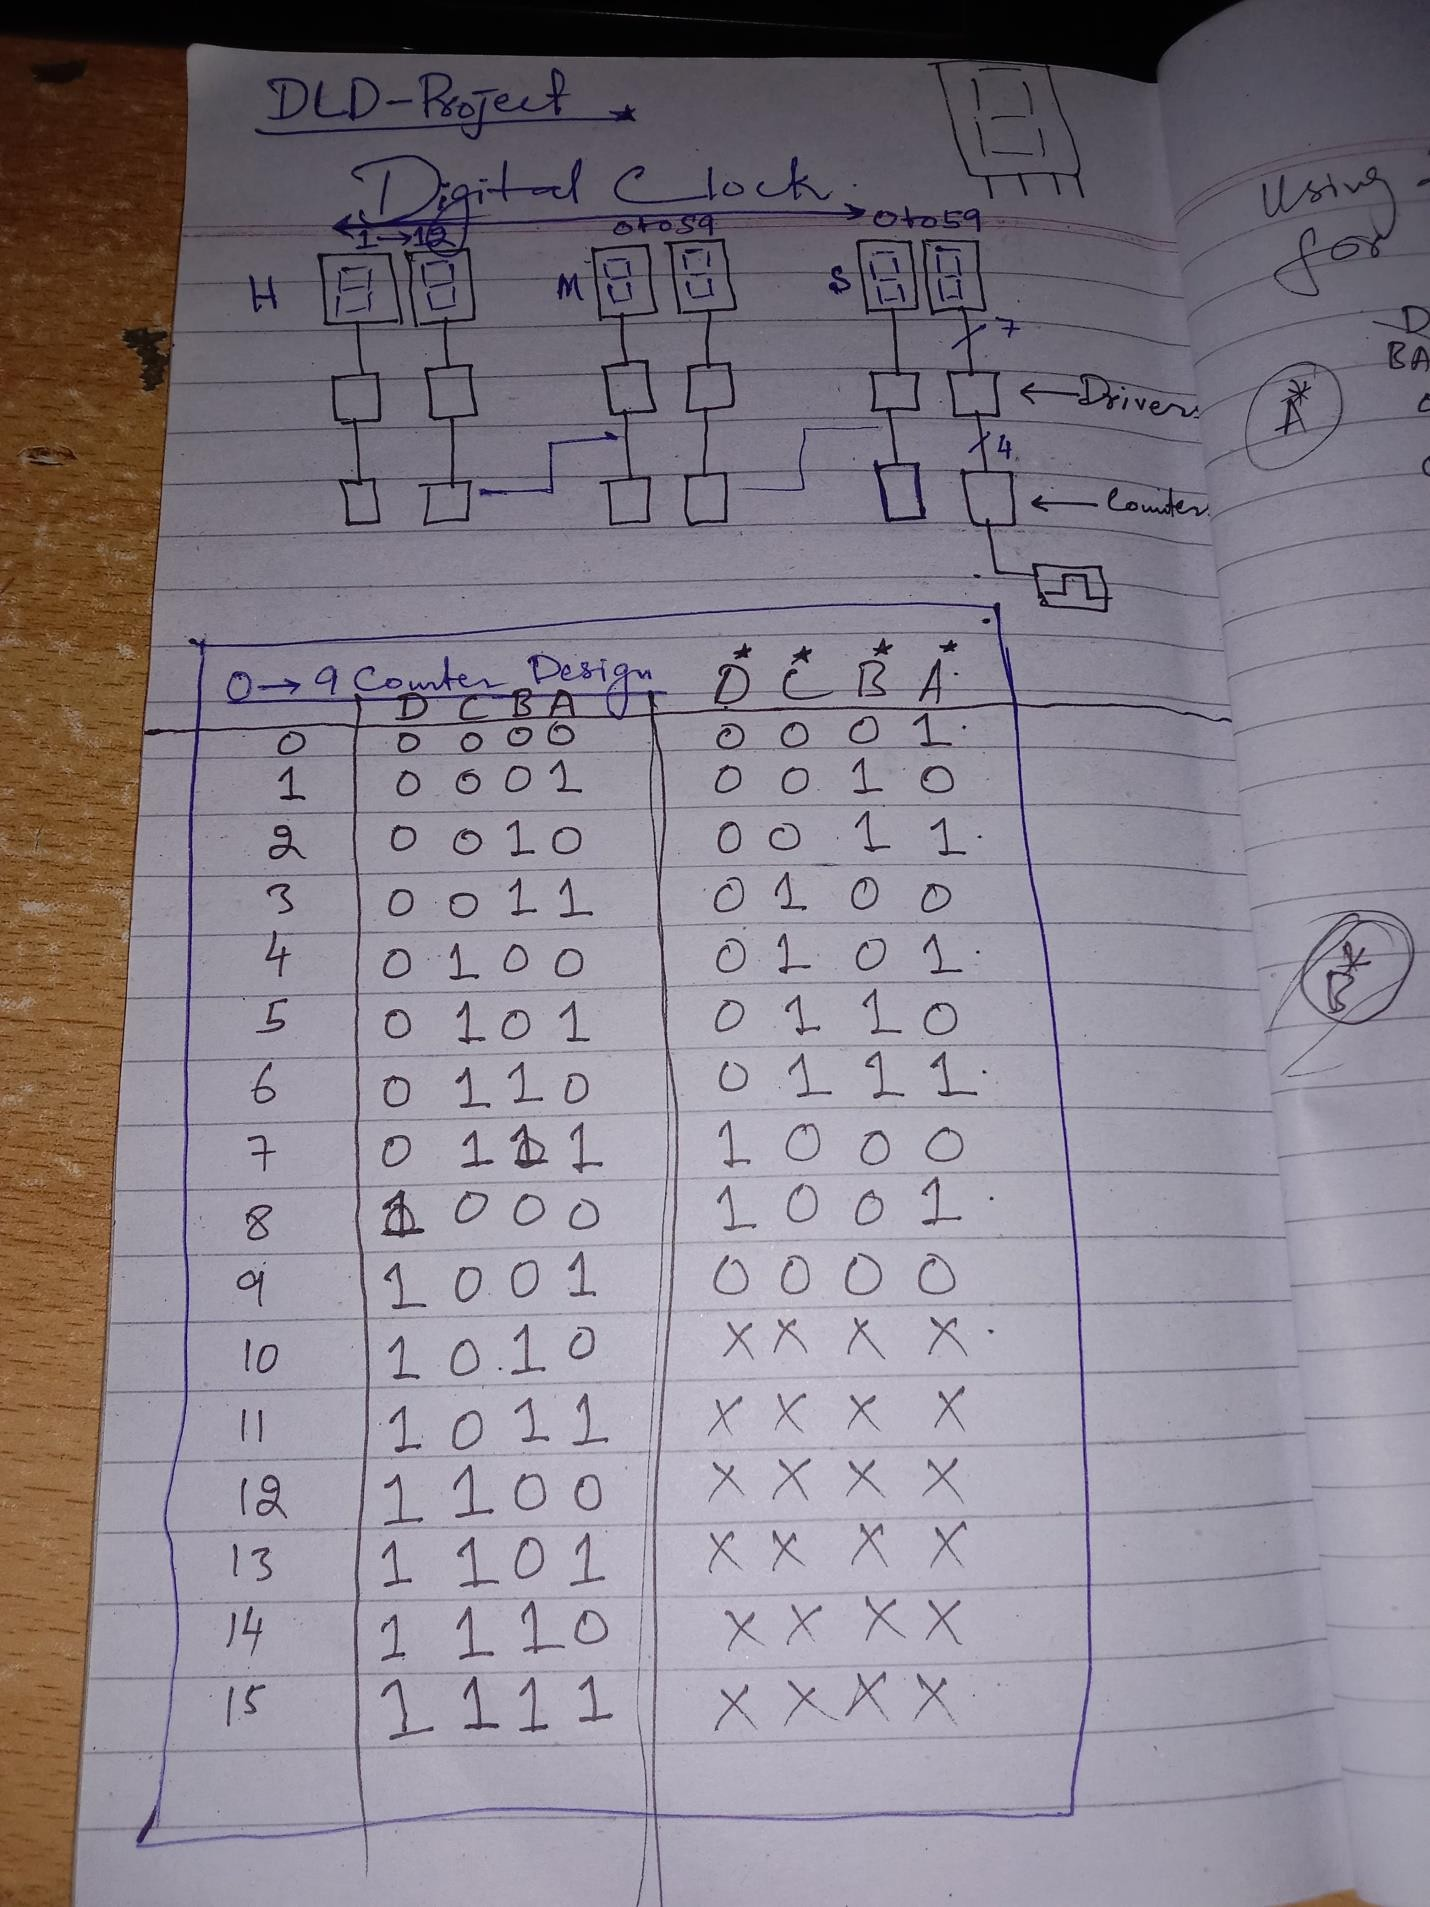 DLD-Project
Digital Clock
1→12 0to59 0to59
H M S
7
←Drivers
4
←Counter
0→9 Counter Design D* C* B* A*
D C B A
0 0 0 0 0 0 0 0 1
1 0 0 0 1 0 0 1 0
2 0 0 1 0 0 0 1 1
3 0 0 1 1 0 1 0 0
4 0 1 0 0 0 1 0 1
5 0 1 0 1 0 1 1 0
6 0 1 1 0 0 1 1 1
7 0 1 1 1 1 0 0 0
8 1 0 0 0 1 0 0 1
9 1 0 0 1 0 0 0 0
10 1 0 1 0 X X X X
11 1 0 1 1 X X X X
12 1 1 0 0 X X X X
13 1 1 0 1 X X X X
14 1 1 1 0 X X X X
15 1 1 1 1 X X X X
Using
for
D
BA
A*
B*